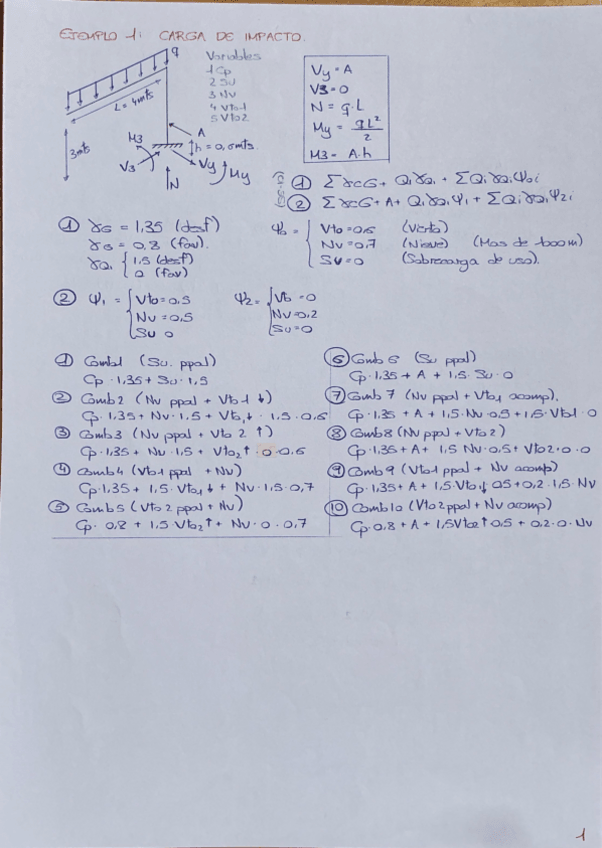 EJEMPLO 1: CARGA DE IMPACTO.
q
L = 4mts
3mts
M3
V3
N
A
h = 0,6mts.
Vy
My
Variables
1 Cp
2 Su
3 Nv
4 Vto1
5 Vto2
Vy = A
V3 = 0
N = q·L
My = qL²/2
M3 = A·h
① ΣγcG + Q1γQ1 + ΣQiγQiΨ0i
② ΣγcG + A + Q1γQ1Ψ1 + ΣQiγQiΨ2i
① γG = 1,35 (desf)
γG = 0,8 (fav).
γQ1 { 1,5 (desf)
0 (fav)
Ψ0 = { Vto = 0,6 (Vento)
Nv = 0,7 (Nieve) (Mas de 1000m)
Su = 0 (Sobrecarga de uso).
② Ψ1 = { Vto = 0,5
Nv = 0,5
Su 0
Ψ2 = { Vto = 0
Nv = 0,2
Su = 0
① Comb1 (Su. ppal)
Cp · 1,35 + Su · 1,5
② Comb 2 (Nv ppal + Vto 1 ↓)
Cp · 1,35 + Nv · 1,5 + Vto1 ↓ · 1,5 · 0,6
③ Comb 3 (Nv ppal + Vto 2 ↑)
Cp · 1,35 + Nv · 1,5 + Vto2 ↑ · 0 · 0,6
④ Comb 4 (Vto1 ppal + Nv)
Cp · 1,35 + 1,5 · Vto1 ↓ + Nv · 1,5 · 0,7
⑤ Comb 5 (Vto 2 ppal + Nv)
Cp · 0,8 + 1,5 · Vto2 ↑ + Nv · 0 · 0,7
⑥ Comb 6 (Su ppal)
Cp · 1,35 + A + 1,5 · Su · 0
⑦ Comb 7 (Nv ppal + Vto1 acomp).
Cp · 1,35 + A + 1,5 · Nv · 0,5 + 1,5 · Vto1 · 0
⑧ Comb 8 (Nv ppal + Vto2)
Cp · 1,35 + A + 1,5 Nv · 0,5 + Vto2 · 0 · 0
⑨ Comb 9 (Vto1 ppal + Nv acomp)
Cp · 1,35 + A + 1,5 · Vto1 ↓ 0,5 + 0,2 · 1,5 · Nv
⑩ Comb 10 (Vto2 ppal + Nv acomp)
Cp · 0,8 + A + 1,5 Vto2 ↑ 0,5 + 0,2 · 0 · Nv
1